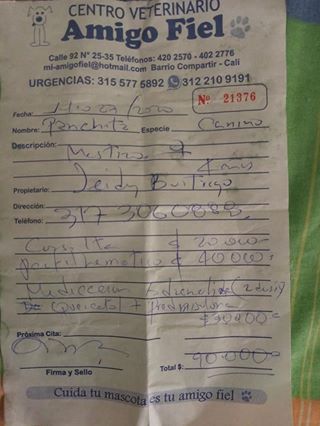 CENTRO VETERINARIO
Amigo Fiel
Calle 92 N° 25-35 Teléfonos: 420 2570 - 402 2776
mi-amigofiel@hotmail.com Barrio Compartir - Cali
URGENCIAS: 315 577 5892 312 210 9191
Fecha: 2020 Nº 21376
Nombre: Panchita Especie Canino
Descripción: Mestizo ♀
4 años
Propietario: Leidy Buitrago
Dirección:
Teléfono: 317 3060888
Consulta $ 20.000
$ 40000
+ Prednisolona
$30.000
Próxima Cita:
Firma y Sello
Total $: 90.000
Cuida tu mascota es tu amigo fiel